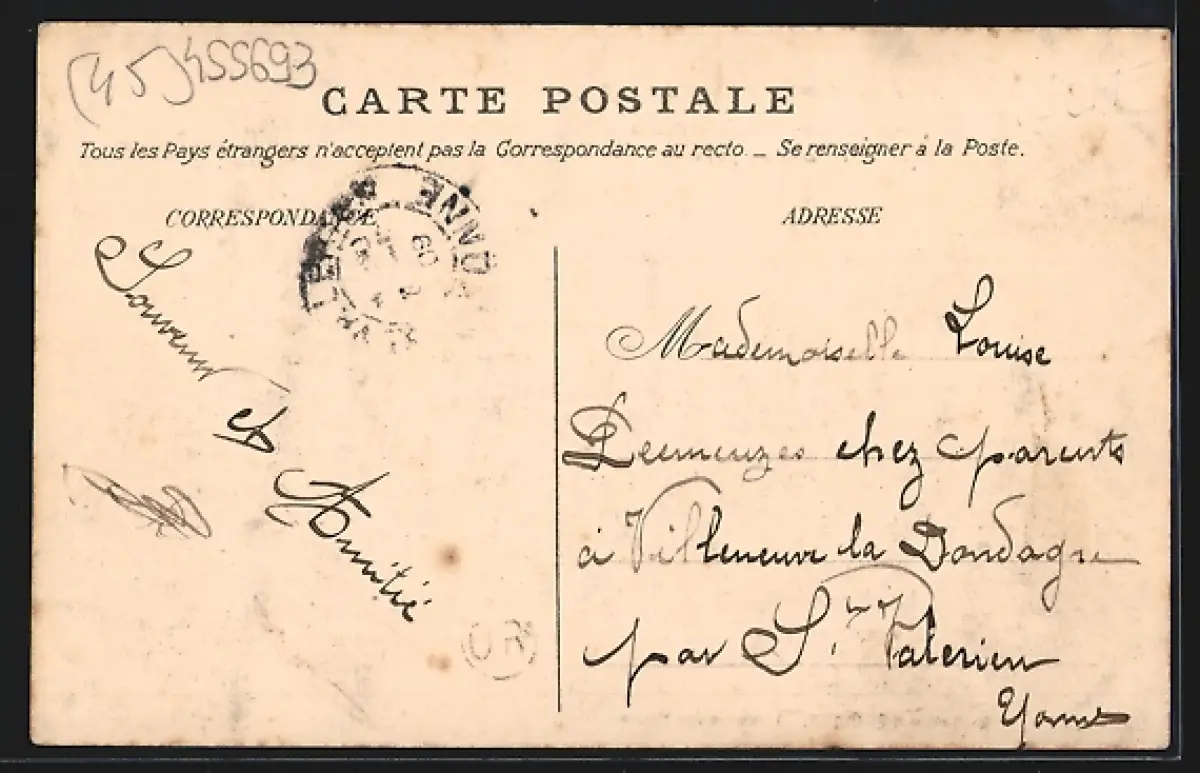 (45) 455693
CARTE POSTALE
Tous les Pays étrangers n'acceptent pas la Correspondance au recto. _ Se renseigner à la Poste.
CORRESPONDANCE
Souvenir
et
Amitié
(OR)
YONNE
09
ADRESSE
Mademoiselle Louise
chez parents
à Villeneuve la Dondagre
par St Valerien
Yonne